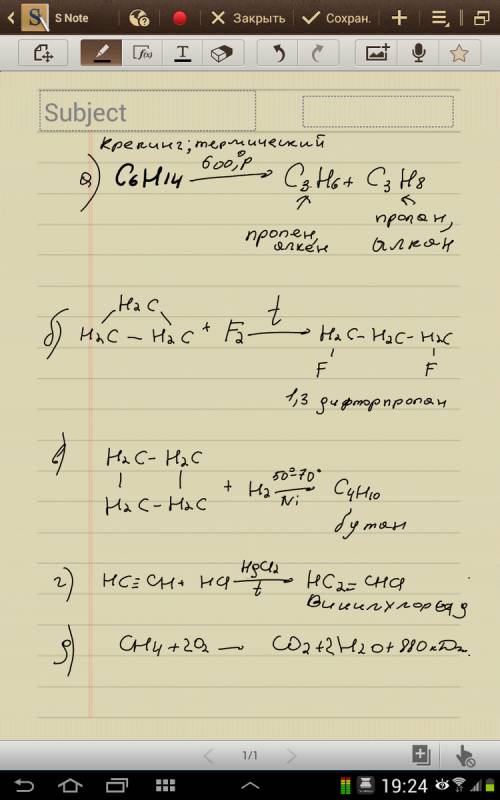 S Note
Закрыть
Сохран.
Subject
Крекинг; термический
а) C6H14 600°, P → C3H6 + C3H8
пропен, алкен
пропан, алкан
H2C
б) H2C – H2C + F2 t → H2C – H2C – H2C
F F
1,3 дифторпропан
в) H2C – H2C
H2C – H2C + H2 50°-70° Ni → C4H10
бутан
г) HC≡CH + HCl HgCl2 t → HC2=CHCl
Винилхлорид
д) CH4 + 2O2 — CO2 + 2H2O + 880 кДж.
1/1
19:24